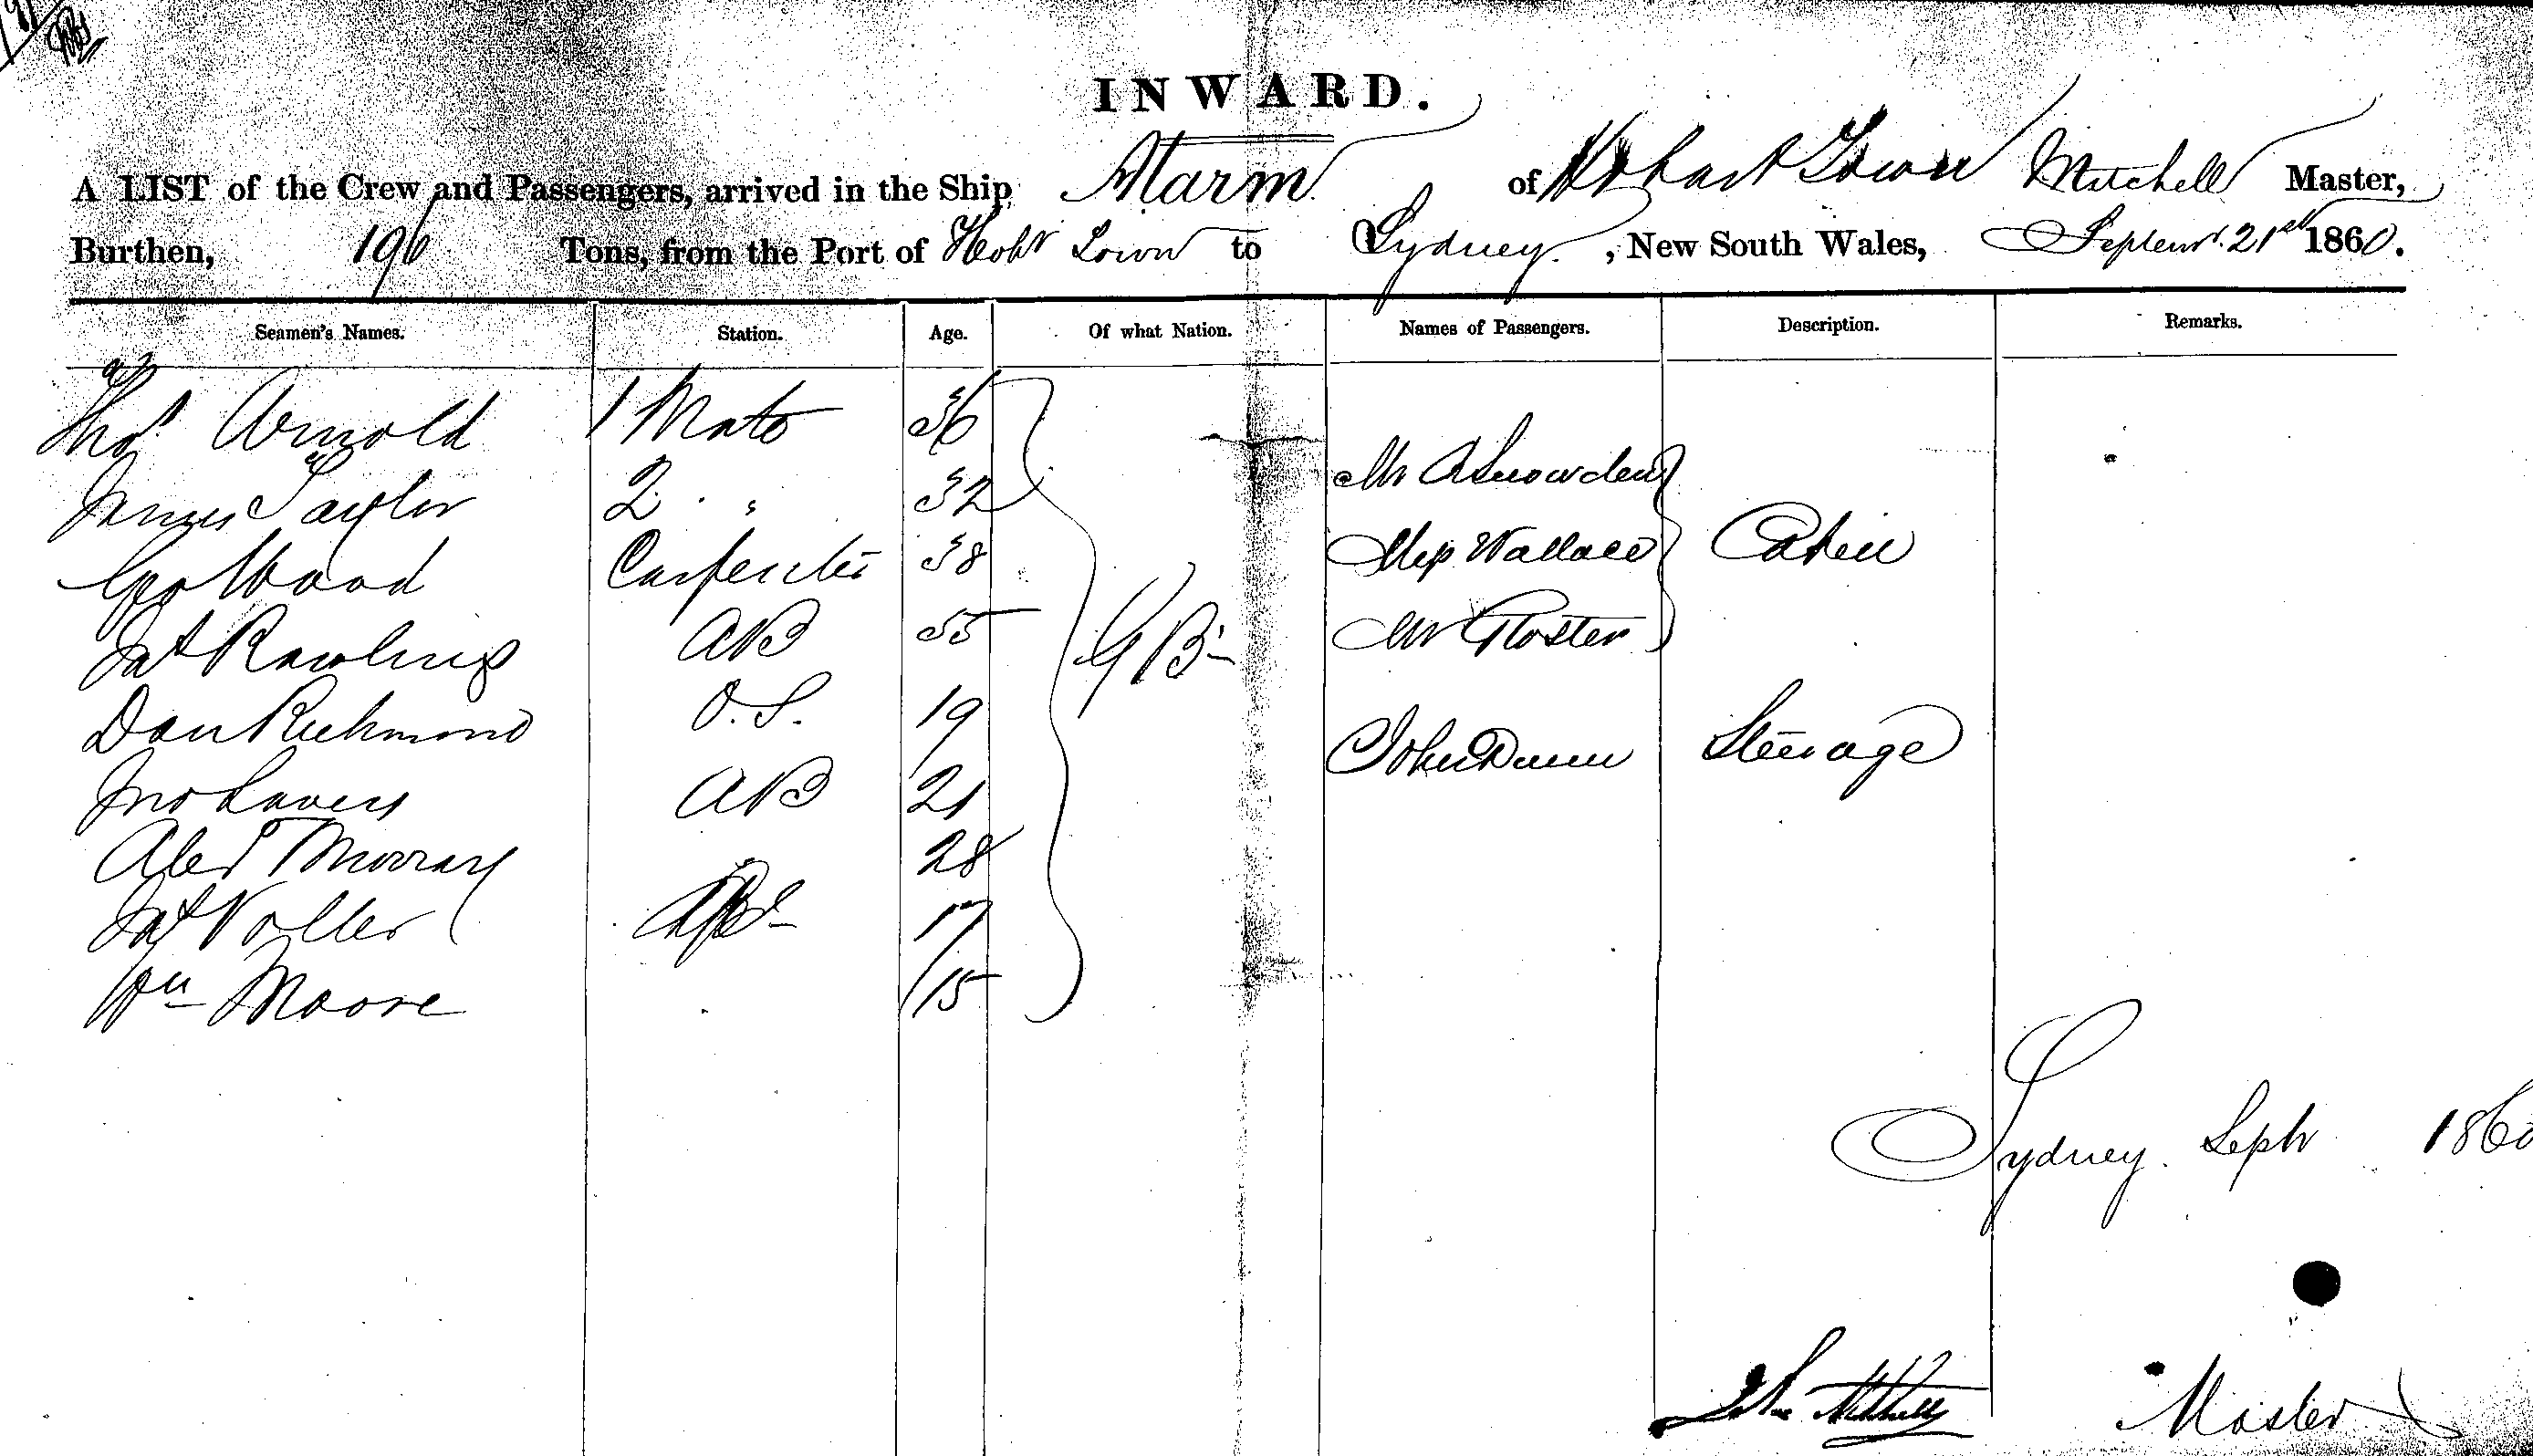 INWARD.
A LIST of the Crew and Passengers, arrived in the Ship Alarm of Hobart Town Mitchell Master,
Burthen, 196 Tons, from the Port of Hobt Town to Sydney, New South Wales, Septemr. 21st 1860.
Seamen's Names. Station. Age. Of what Nation. Names of Passengers. Description. Remarks.
Thos Arnold 1 Mate 36
James Taylor 2 " 32 Mr A Snowden
Geo Wood Carpenter 38 Miss Wallace Cabin
Jas Rawlings AB 55 G B Mr Foster
Dan Richmond O.S. 19 John Dunn Steerage
Jno AB 21
Alexr Murray 28
Jas Voller 17
Wm Moore 15
Sydney. Septr 1860
John Mitchell Master